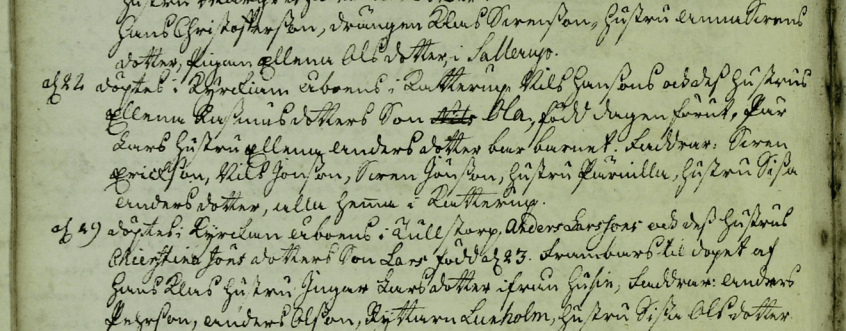 Hans Christofferson, drängen Klas Sörenson, hustru Anna Sörens
dotter, Pigan Ellena Ols dotter i Sallerup.
d. 22 döptes i Kyrckian Åboens i Katterup Nils Hansons ock des hustrus
Ellena Rasmus dotters Son Ola, född dagen förut. Pär
Lars hustru Ellena Anders dotter bar barnet. Faddrar: Sören
Erickson, Nils Jönson, Sören Jönson, hustru Pärnilla, hustru Sissa
Anders dotter, alla hema i Katterup.
d. 29 döptes i Kyrckian Åboens i Tullstorp, Anders Larssons ock des hustrus
Kierstina Jöns dotters Son Lars född d. 23. Frambars til dopet af
Hans Klas hustru Ingar Lars dotter ifrån Husie, Faddrar: Anders
Pehrson, Anders Olson, Ryttarn Lunholm, hustru Sissa Ols dotter